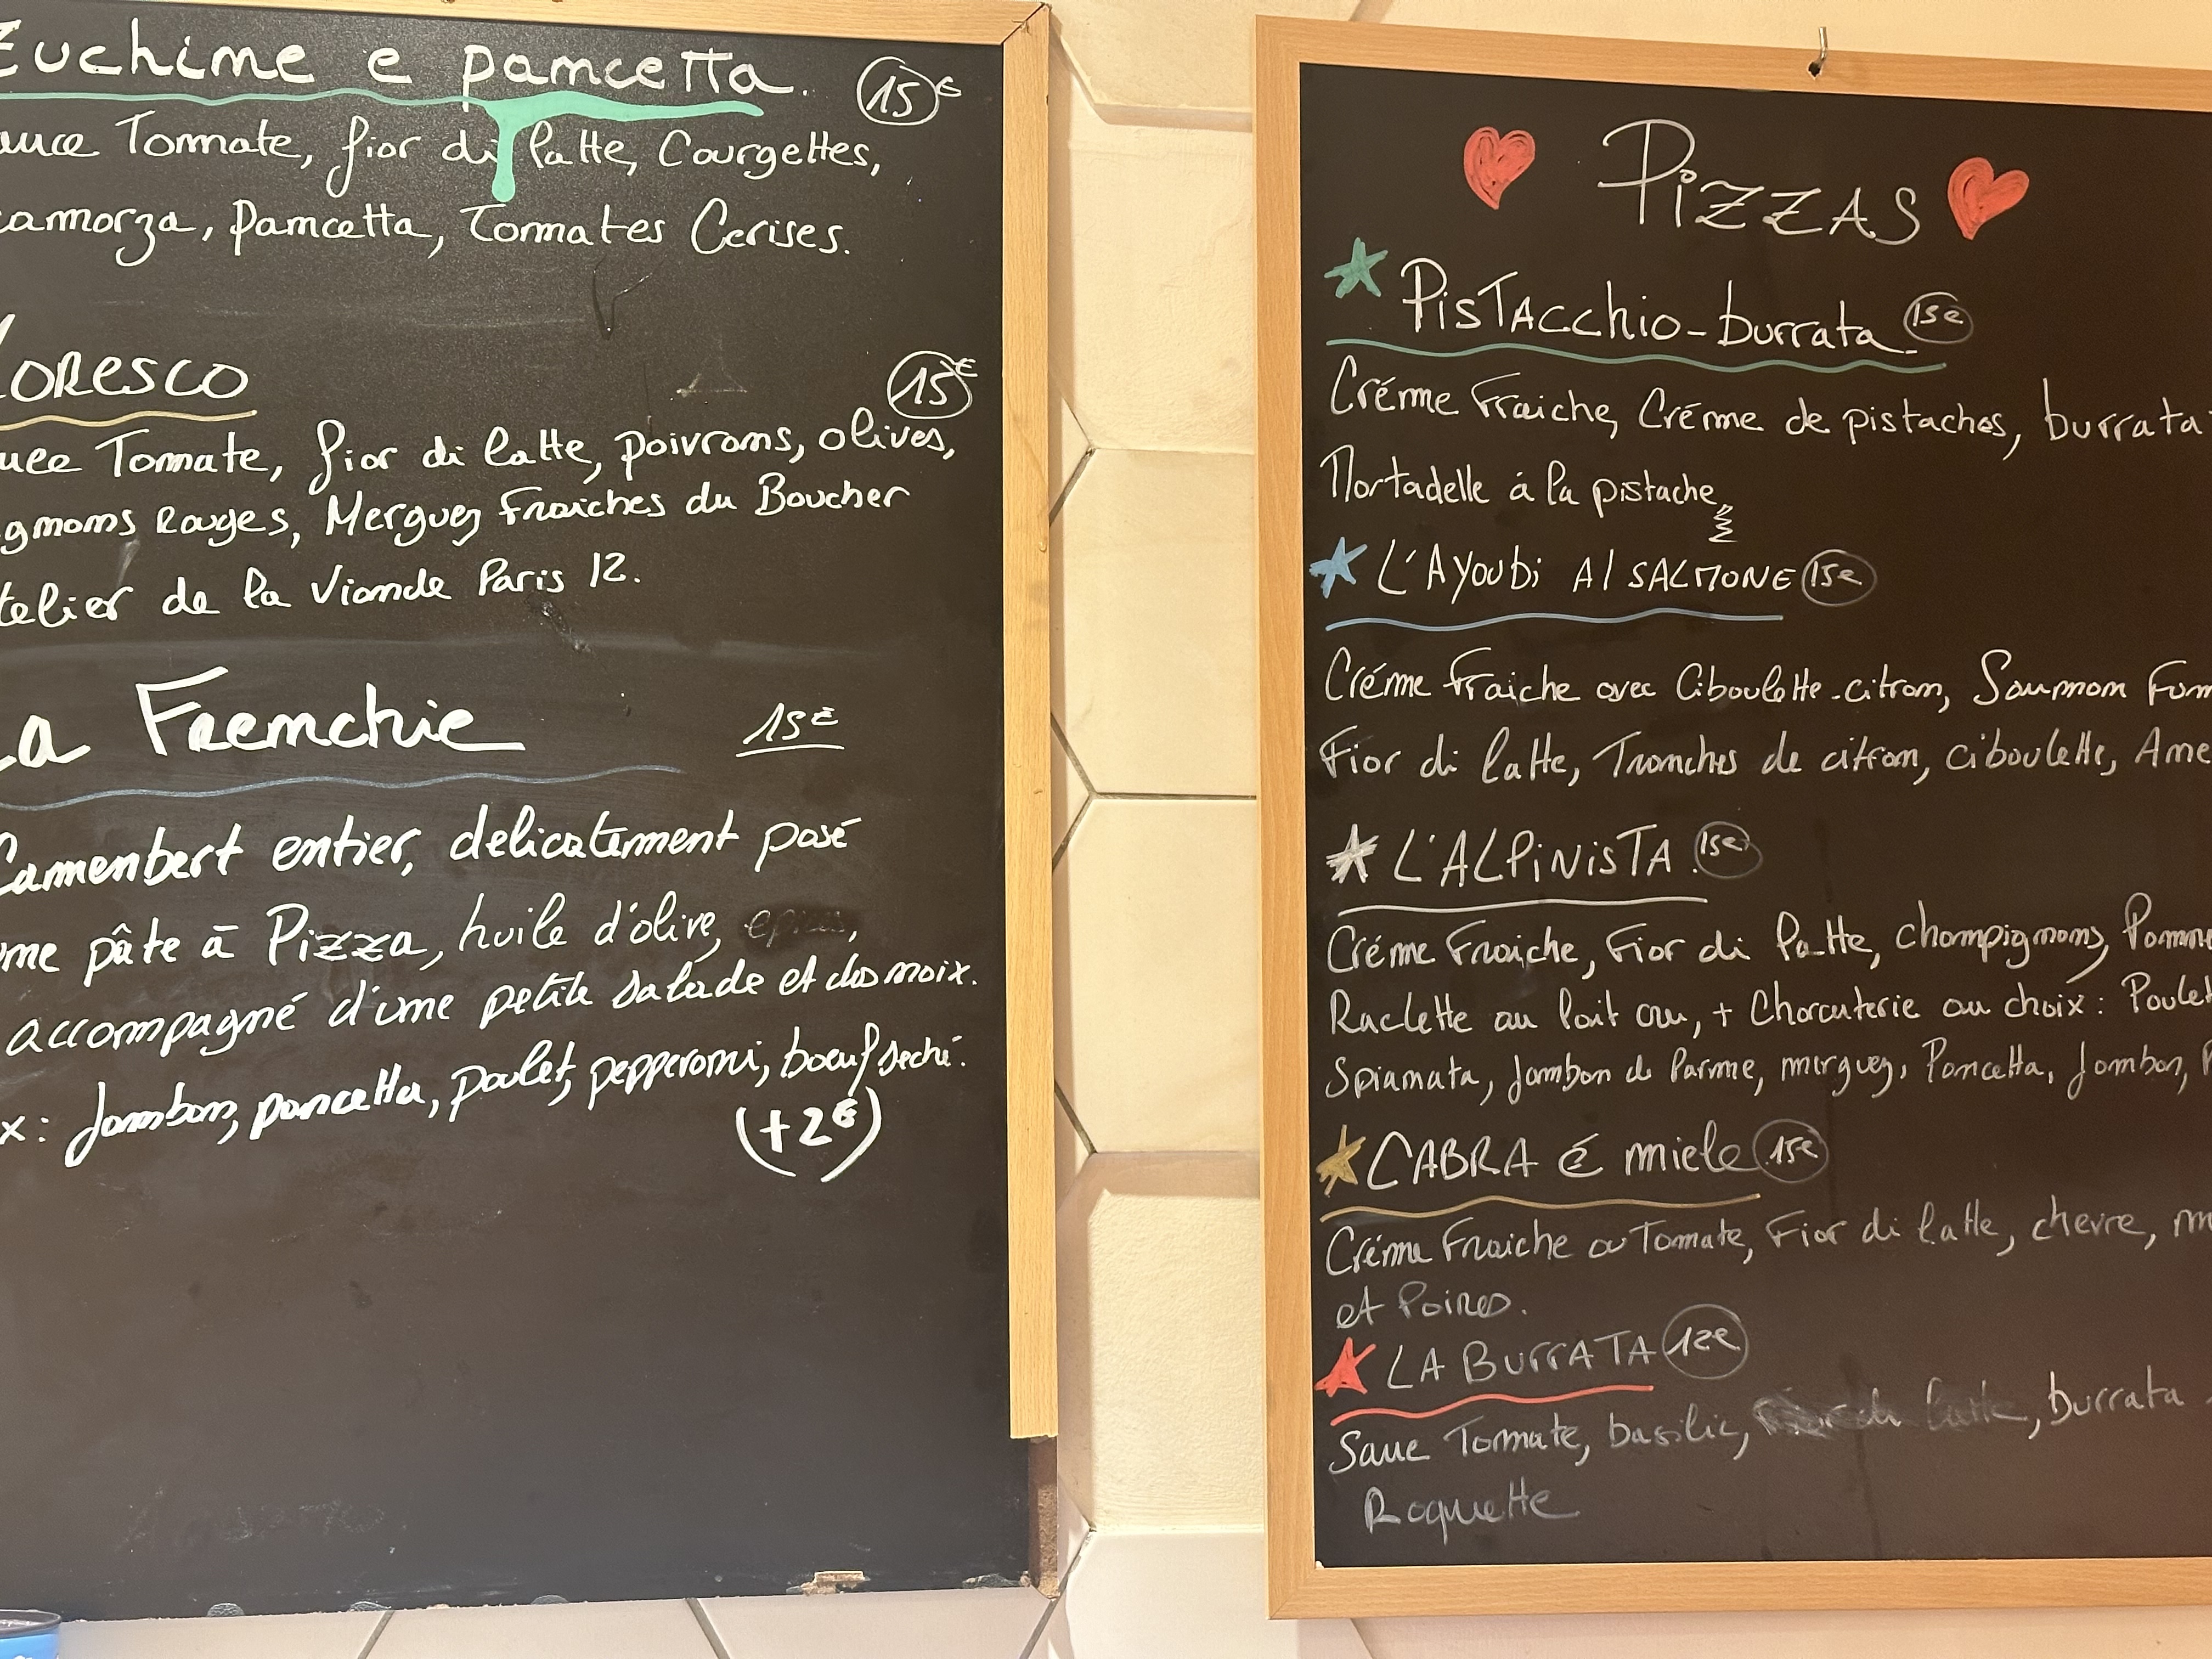 Zuchime e pamcetta. 15€
auce Tomate, fior di latte, Courgettes,
camorza, pamcetta, Tomates Cerises.
oresco 15€
uce Tomate, fior di latte, poivrons, olives,
gnons Rouges, Merguez Fraîches du Boucher
telier de la Viande Paris 12.
a Frenchie 15€
Camenbert entier, delicatement posé
me pâte à Pizza, huile d'olive, epices,
accompagné d'une petite salade et des noix.
x: Jambon, pancetta, poulet, pepperoni, boeuf seché.
(+2€)
Pizzas
Pistacchio-burrata 15€
Créme Fraiche, Créme de pistaches, burrata
Mortadelle á la pistache,
L'Ayoubi Al SALMONE 15€
Créme fraiche avec Ciboulette-citron, Saumon Fum
Fior di latte, Tranches de citron, ciboulette, Ane
L'ALPiNisTA. 15€
Créme Fraiche, Fior di latte, champignons, Pomme
Raclette au lait cru, + Charcuterie au choix: Poulet
Spianata, Jambon de Parme, merguez, Pancetta, Jambon, P
CABRA É miele 15€
Créme Fraiche ou Tomate, Fior di latte, chevre, m
et Poires.
LA BurrATA 12€
Saue Tomate, basilic, Fior di latte, burrata
Roquette